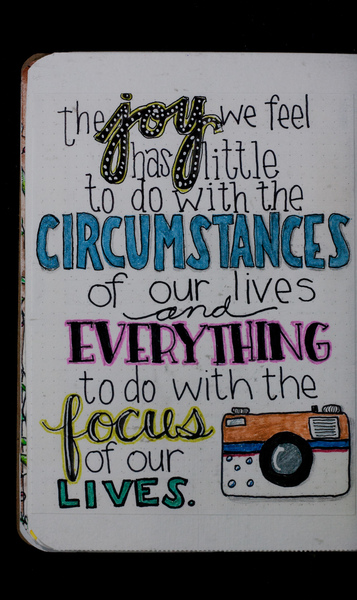 the joy we feel
has little
to do with the
CIRCUMSTANCES
of our lives
and
EVERYTHING
to do with the
focus
of our
LIVES.